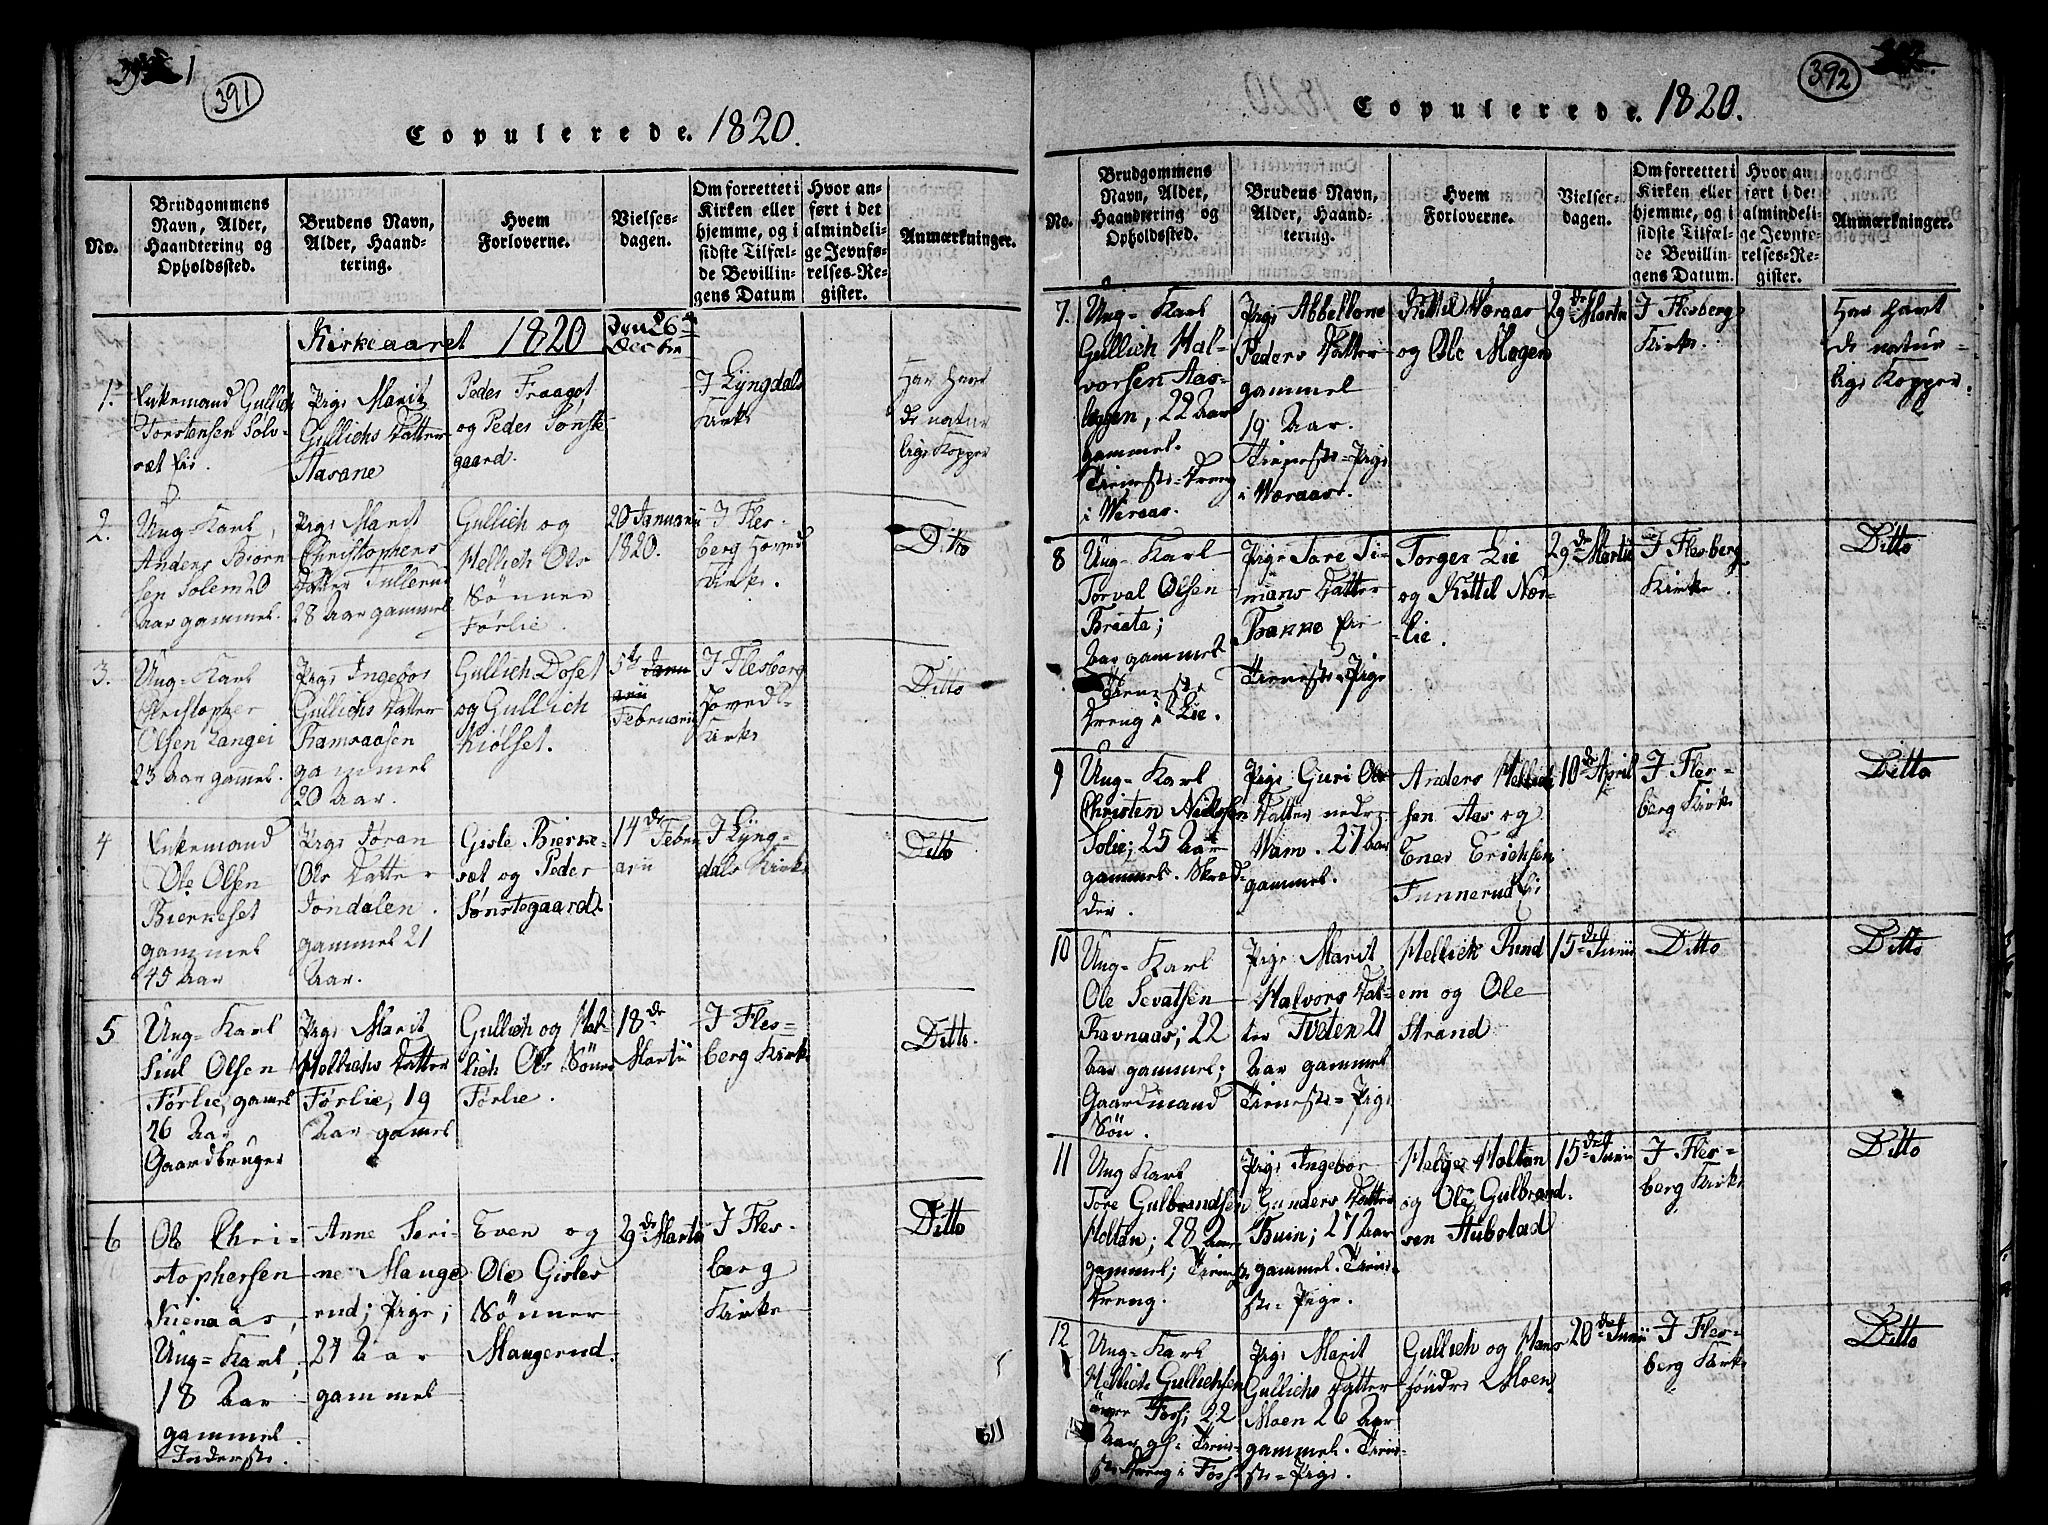 391
Copulerede. 1820.
No.
Brudgommens
Navn, Alder,
Haandtering og
Opholdssted.
Brudens Navn,
Alder, Haand-
tering.
Hvem
Forloverne.
Vielses-
dagen.
Om forrettet i
Kirken eller
hjemme, og i
sidste Tilfæl-
de Bevillin-
gens Datum
Hvor an-
ført i det
almindeli-
ge Jevnfø-
relses-Re-
gister.
Anmærkninger.
Kirkeaaret 1820
Den 26de
Decbr
1.
Enkemand Gullich
Torstensen Solv-
sæt Eie.
Pige Marit
Gullichs Datter
Aasane
Peder Fraagot
og Peder Sønste
gaard.
I Lyngdals
Kirke
Har havt
de natur
lige Kopper
2.
Ung-Karl,
Anders Biørn
sen Solem 20
Aar gammel.
Pige Marit
Christophers
Datter Tullerud
28 Aar gammel
Gullich og
Hellich Ols
Sønner
Førlie.
20 Januarii
1820.
I Fles-
berg Hoved
Kirke.
Ditto
3.
Ung-Karl
Christopher
Olsen Langei
23 Aar gammel.
Pige Ingebor
Gullichs Datter
Ramsaasen
gammel
20 Aar.
Gullich Doset
og Gullich
Kiølset.
5te
Februarii
I Flesberg
Hoved-
Kirke
Ditto
4
Enkemand
Ole Olsen
Bierkeset
gammel
45 Aar
Pige Jøran
Ols Datter
Jondalen.
gammel 21
Aar.
Gisle Bierke-
sæt og Peder
Sønstegaard.
14de Febru
arii
I Lyng-
dals Kirke
Ditto
5
Ung-Karl
Siul Olsen
Førlie, gamel
26 Aar
Gaardbruger
Pige Marit
Hellichs Datter
Førlie, 19
Aar gamel
Gullich og Hel-
lich Ols Sønner
Førlie.
18de
Martii
I Fles-
berg Kirke
Ditto.
6
Ole Chri-
stophersen
Kienaas,
Ung-Karl,
18 Aar
gammel.
Inderste.
Anne Seri-
ne Mauge
rud; Pige;
24 Aar
gammel
Even og
Ole Gisles
Sønner
Maugerud.
29de Martii
I Fles-
berg
Kirke
Ditto
392
Copulerede. 1820.
No.
Brudgommens
Navn, Alder,
Haandtering og
Opholdssted.
Brudens Navn,
Alder, Haand-
tering.
Hvem
Forloverne.
Vielses-
dagen.
Om forrettet i
Kirken eller
hjemme, og i
sidste Tilfæl-
de Bevillin-
gens Datum.
Hvor an
ført i det
almindeli-
ge Jevnfø-
relses-Re-
gister.
Anmærkninger.
7.
Ung-Karl
Gullich Hal-
vorsen Aas-
legen, 22 Aar
gammel.
Tieneste-Dreng
i Væraas.
Pige Abbellone
Peders Datter
gammel
19 Aar.
Tieneste-Pige
i Væraas.
Kittil Væraas
og Ole Mogen
29de Martii
I Flesberg
Kirke.
Har havt
de natur-
lige Kopper.
8
Ung-Karl
Torval Olsen
Braata;
Aar gammel
Tieneste
Dreng i Lie.
Pige Tare Ti-
mans Datter
Bakke Eie
Tieneste-Pige
Torger Lie
og Kittil Nør-
lie.
29de Martii
I Flesberg
Kirke.
Ditto
9
Ung-Karl
Christen Nielssen
Solie; 25 Aar
gammel. Skræd-
der.
Pige Guri Ols
Datter nedre
Vam. 27 Aar
gammel.
Anders Hellich
sen Aas og
Ener Erichsen
Tunnerud Eie
10de April
I Fles-
berg Kirke
Ditto
10
Ung-Karl
Ole Sevatsen
Ravnaas; 22
Aar gammel;
Gaardmand
Søn.
Pige Marit
Halvors Dat-
ter Tveten 21
Aar gammel
Tieneste-Pige
Hellich Rud
em og Ole
Strand
15de Junii
Ditto
Ditto
11
Ung Karl
Tore Gulbrandsen
Holtan; 28 Aar
gammel; Tieneste
Dreng.
Pige Ingebor
Gunders Datter
Buin; 27 Aar
gammel. Tiene-
ste-Pige.
Helge Holtan
og Ole Gulbrand-
sen Stubstad
15de Junii
I Fles-
berg Kirke
Ditto
12
Ung-Karl
Hellich Gullichsen
øvre Foss; 22
Aar gl. Tiene-
ste Dreng i Foss.
Pige Marit
Gullichs Datter
Moen 26 Aar
gammel. Tiene-
ste-Pige.
Gullich og Hans
søndre Moen
20de Junii
I Fles-
berg Kirke
Ditto